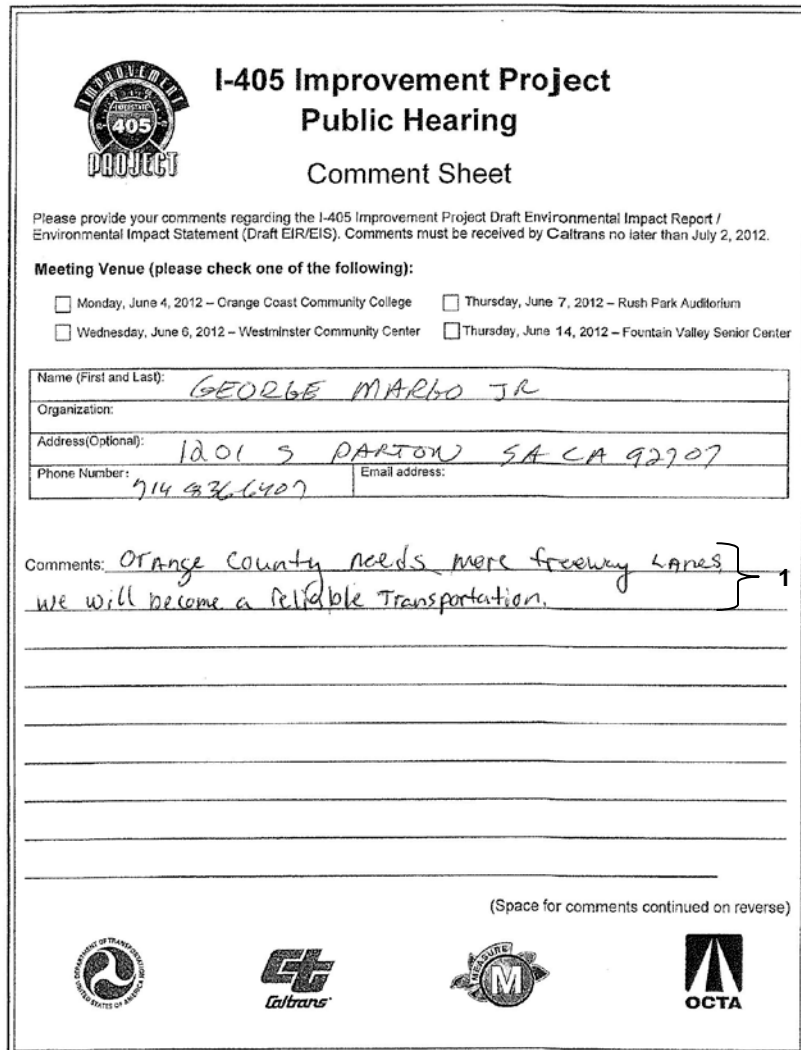 IMPROVEMENT
INTERSTATE
405
PROJECT
I-405 Improvement Project
Public Hearing
Comment Sheet
Please provide your comments regarding the I-405 Improvement Project Draft Environmental Impact Report /
Environmental Impact Statement (Draft EIR/EIS). Comments must be received by Caltrans no later than July 2, 2012.
Meeting Venue (please check one of the following):
Monday, June 4, 2012 – Orange Coast Community College
Thursday, June 7, 2012 – Rush Park Auditorium
Wednesday, June 6, 2012 – Westminster Community Center
Thursday, June 14, 2012 – Fountain Valley Senior Center
Name (First and Last): GEORGE MARGO JR
Organization:
Address(Optional): 1201 S PARTON SA CA 92707
Phone Number: 714 836 6407 Email address:
Comments: Orange County needs more freeway Lanes
we will become a reliable Transportation.
1
(Space for comments continued on reverse)
DEPARTMENT OF TRANSPORTATION
UNITED STATES OF AMERICA
Caltrans
MEASURE
M
OCTA